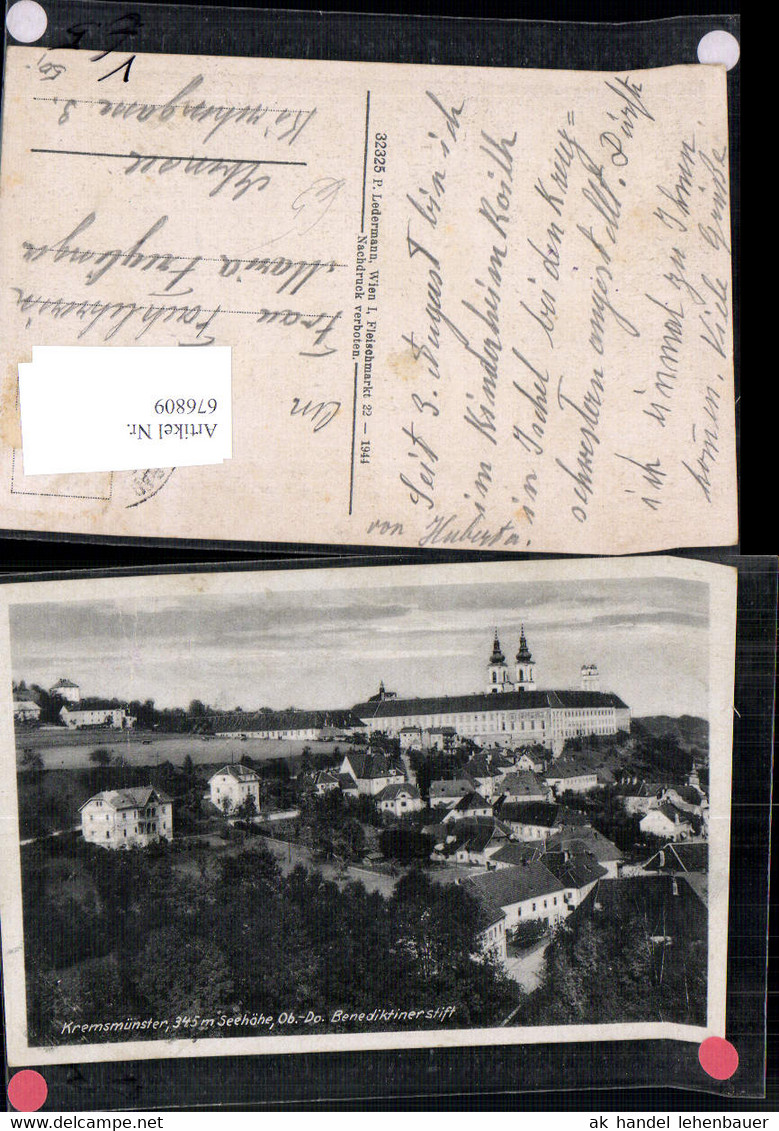 Seit 3. August bin ich
im Kinderheim Kaith
in Ischl bei den Kreuz=
schwestern angestellt. Dürft
ich einmal zu Ihnen
kommen. Viele Grüße
von Huberta.
32325 P. Ledermann, Wien I, Fleischmarkt 22 — 1944
Nachdruck verboten.
An
Frau
Maria
Kirchengasse 3.
Artikel Nr.
676809
Kremsmünster, 345 m Seehöhe, Ob.-Do. Benediktinerstift
ak handel lehenbauer